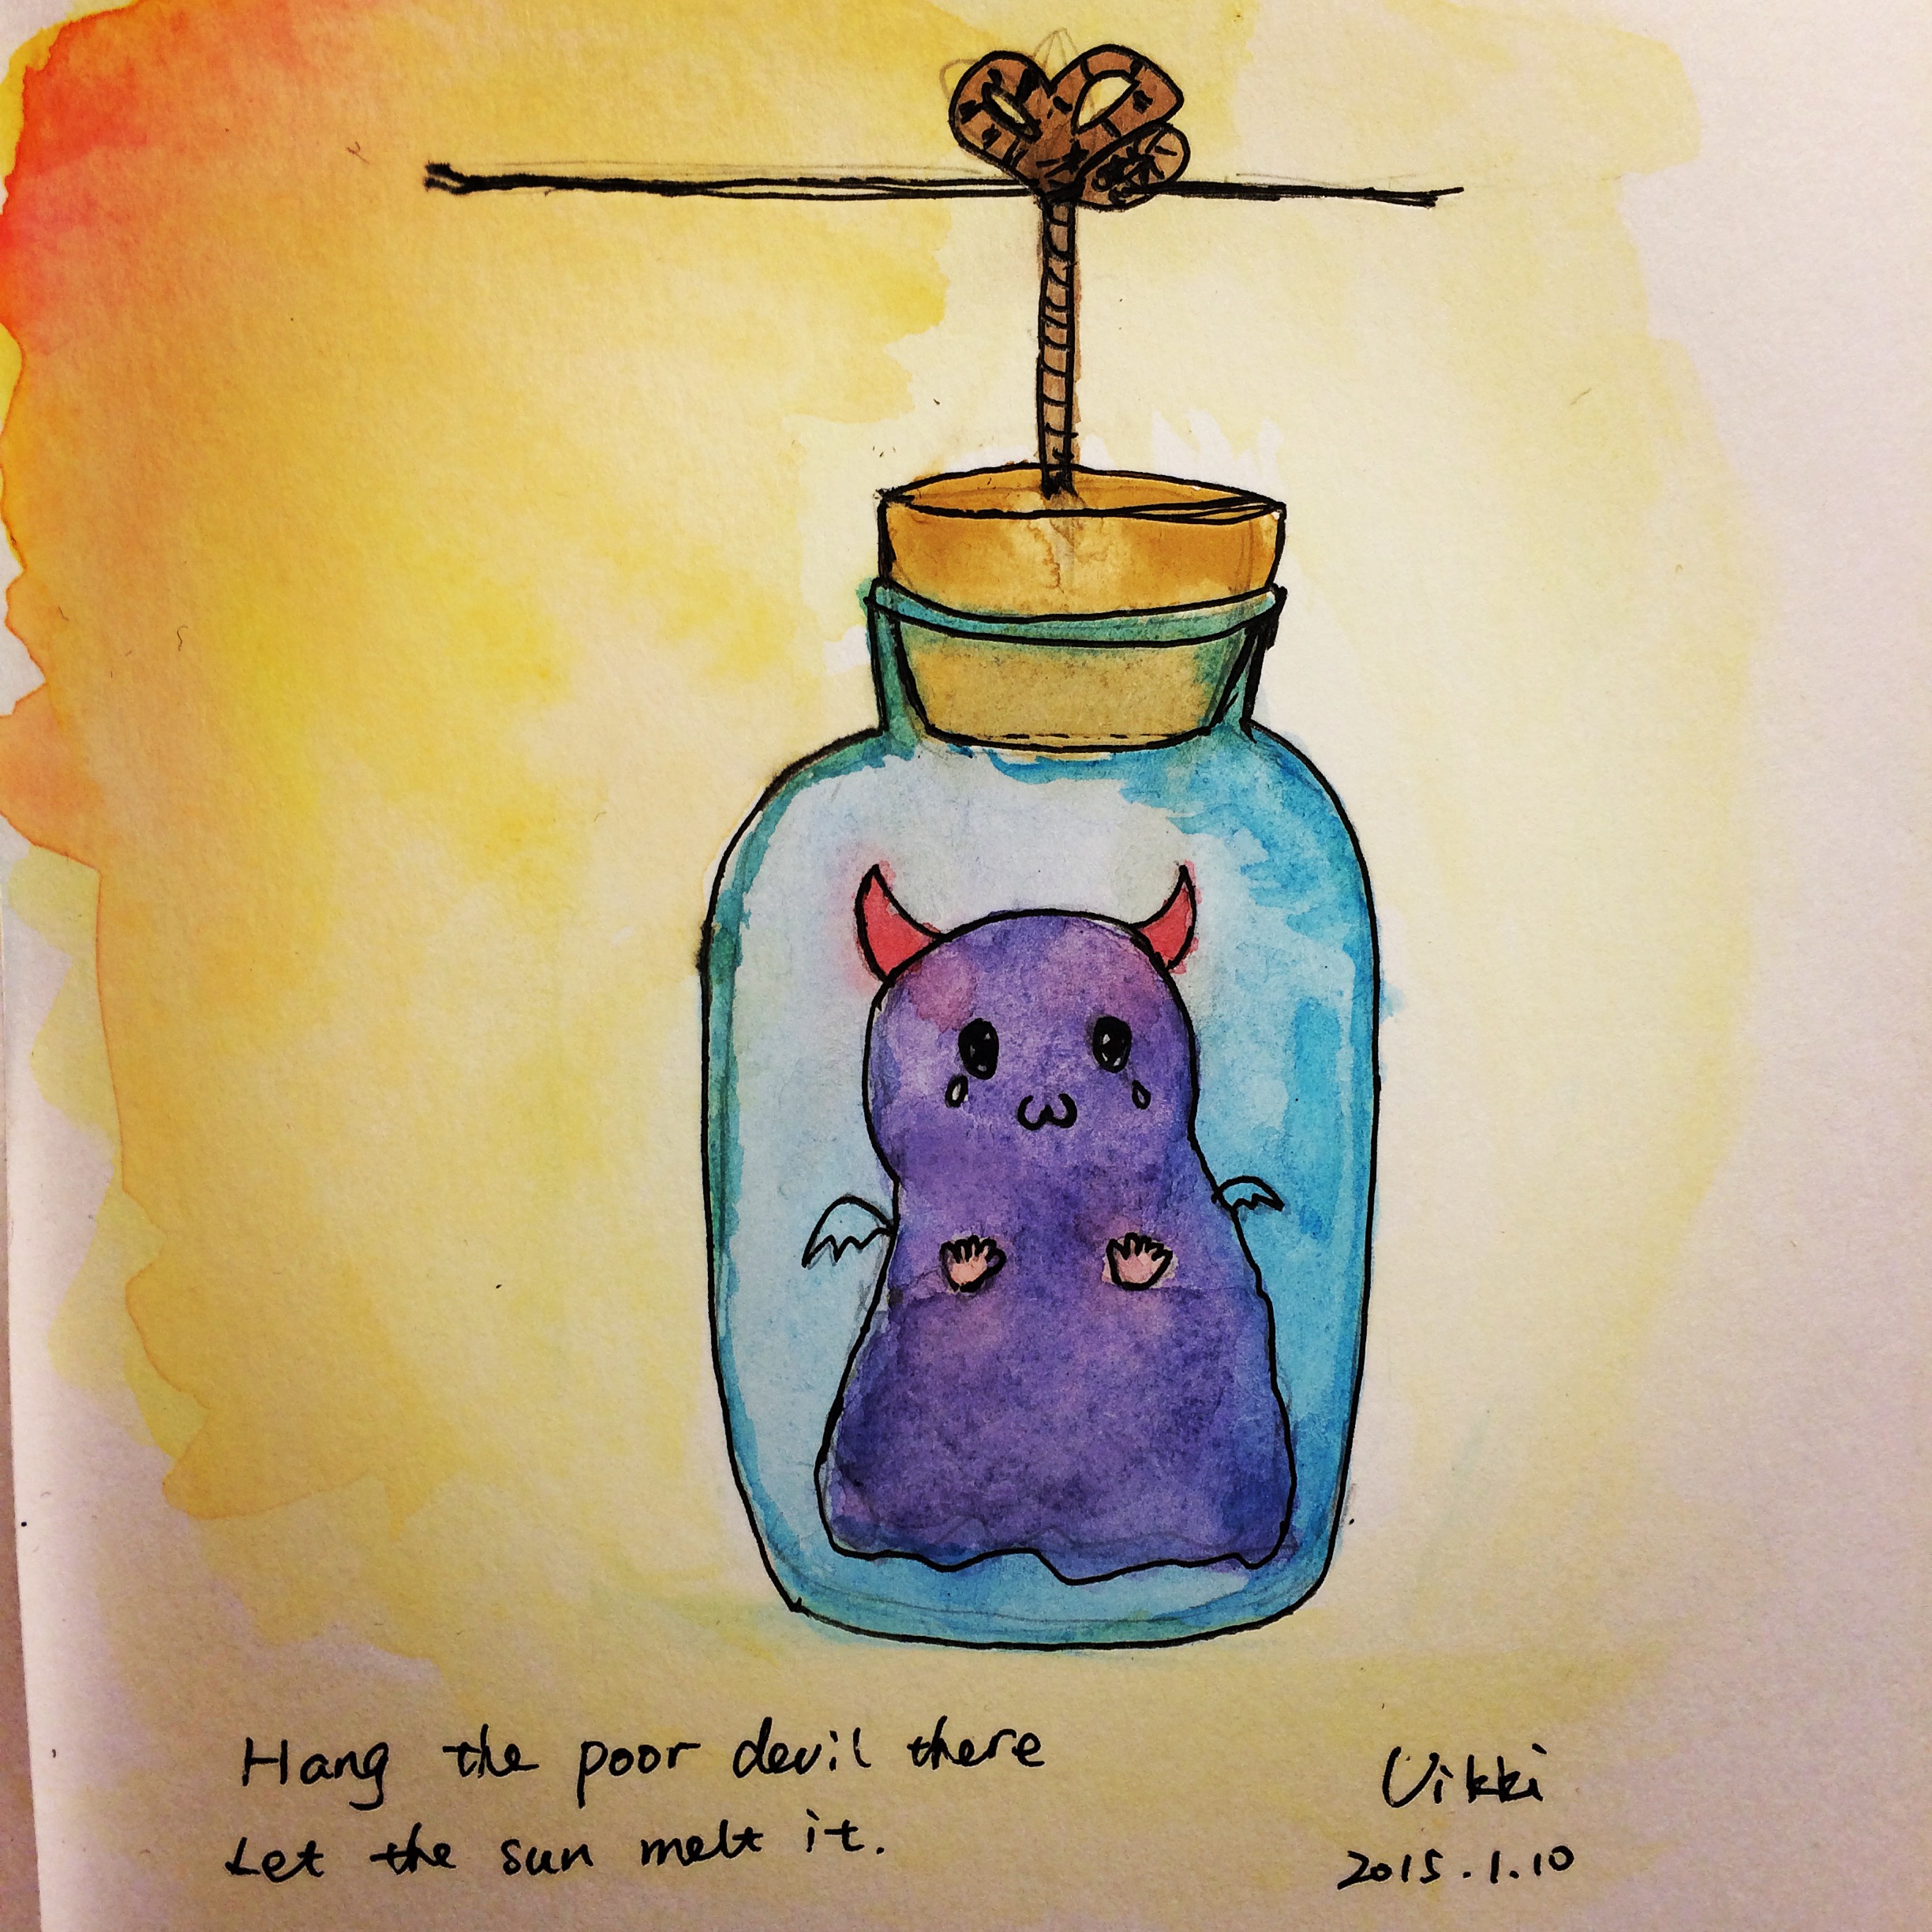 Hang the poor devil there
Let the sun melt it.
Vikki
2015.1.10